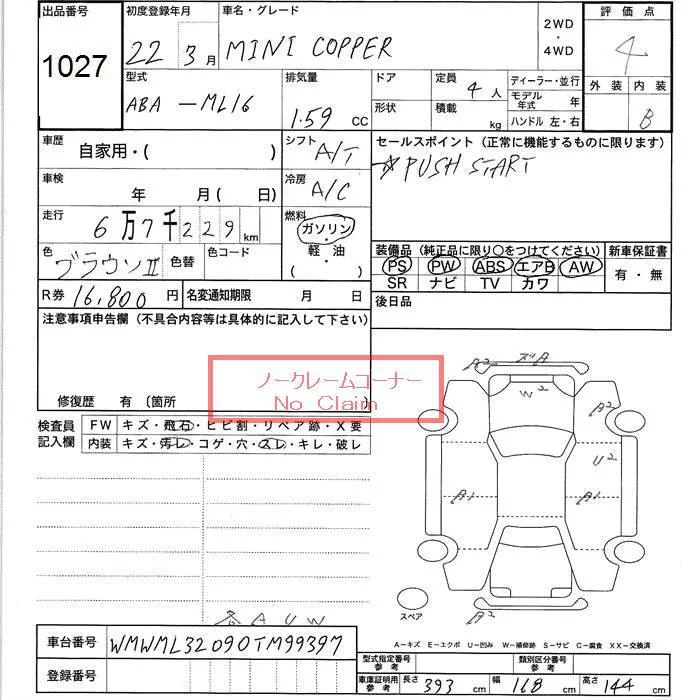 出品番号
1027
初度登録年月
22 3月
車名・グレード
MINI COPPER
2WD
・
4WD
評価点
4
外装 内装
B
型式
ABA-ML16
排気量
1.59 CC
ドア
形状
定員
4人
積載
kg
ディーラー・並行
モデル年式 年
ハンドル 左・右
車歴
自家用・( )
シフト
A/T
セールスポイント(正常に機能するものに限ります)
☆PUSH START
車検
年 月( 日)
冷房
A/C
走行
6万7千229km
燃料
ガソリン
・
軽・油
( )
色
色替
色コード
装備品(純正品に限り○をつけてください)
PS PW ABS エアB AW
SR ナビ TV カワ
新車保証書
有・無
R券 16,800円
名変通知期限 月 日
後日品
注意事項申告欄(不具合内容等は具体的に記入して下さい)
ノークレームコーナー
No Claim
修復歴 有(箇所
検査員
記入欄
FW キズ・飛石・ヒビ割・リペア跡・X要
内装 キズ・汚レ・コゲ・穴・スレ・キレ・破レ
A2
ズA
W2
A2
U2
A1
A1
スペア
A2
各AUW
A-キズ E-エクボ U-凹み W-補修跡 S-サビ C-腐食 XX-交換済
車台番号 WMWML32090TM99397
登録番号
型式指定番号
参考
類別区分番号
参考
車庫証明用
参考
長さ 393 cm 幅 168 cm 高さ 144 cm